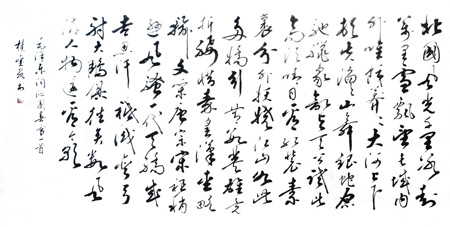 北國風光千里冰封
萬里雪飄望長城内
外唯餘莽莽大河上下
頓失滔滔山舞銀蛇原
馳蠟象欲與天公試比
高須晴日看紅裝素
裹分外妖嬈江山如此
多嬌引無數英雄競
折腰惜秦皇漢武略
輸文采唐宗宋祖稍
遜風騷一代天驕成
吉思汗祇識彎弓
射大雕俱往矣數風
流人物還看今朝
毛澤東詞沁園春雪一首